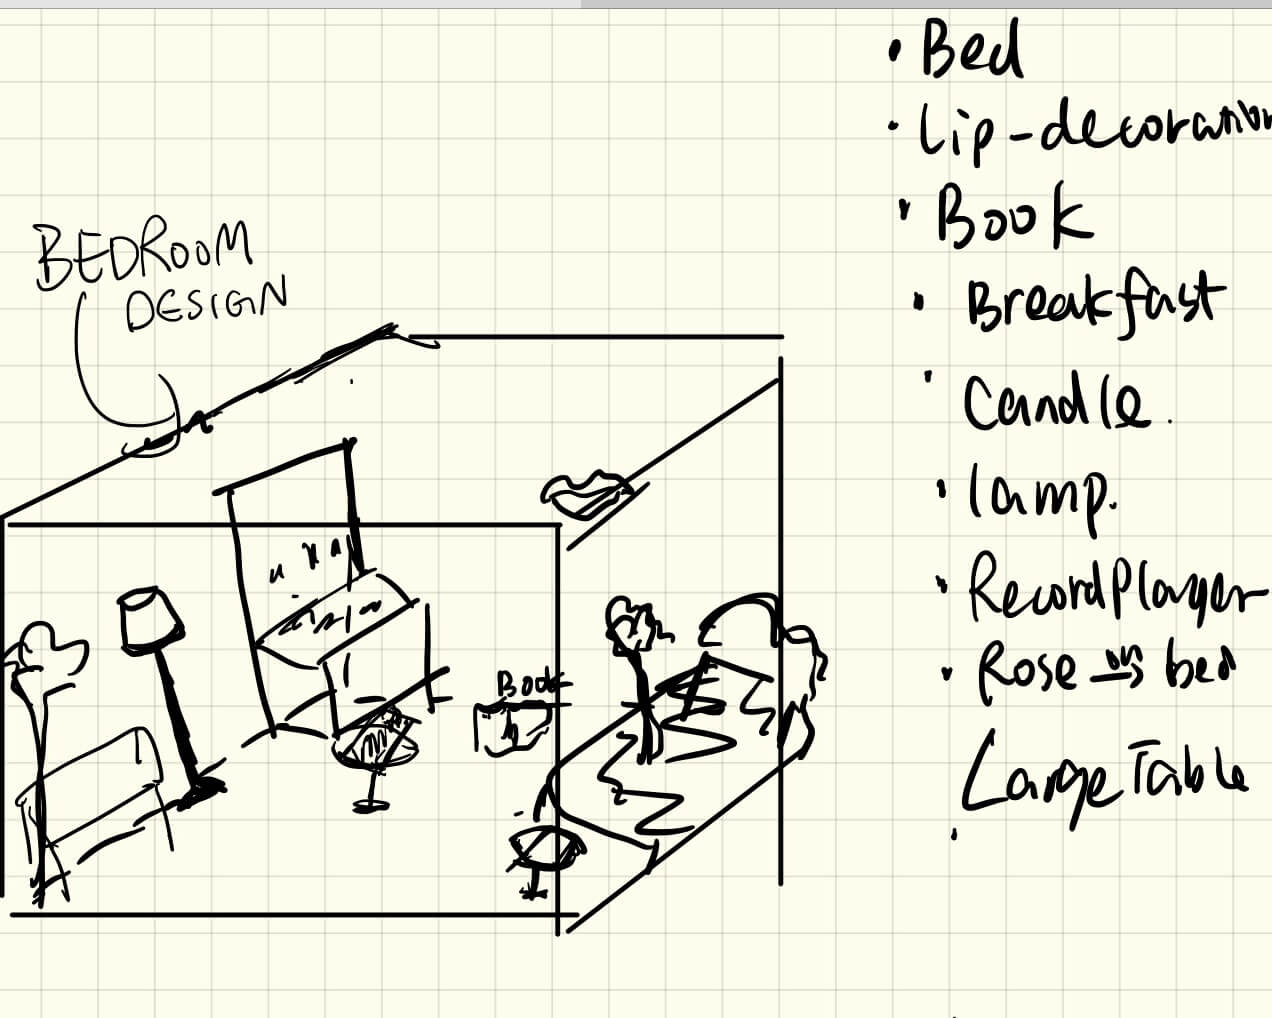 BEDROOM
DESIGN
Book
• Bed
• Lip-decoration
• Book
• Breakfast
• Candle.
• lamp.
• Record Player
• Rose on bed
Large Table
•